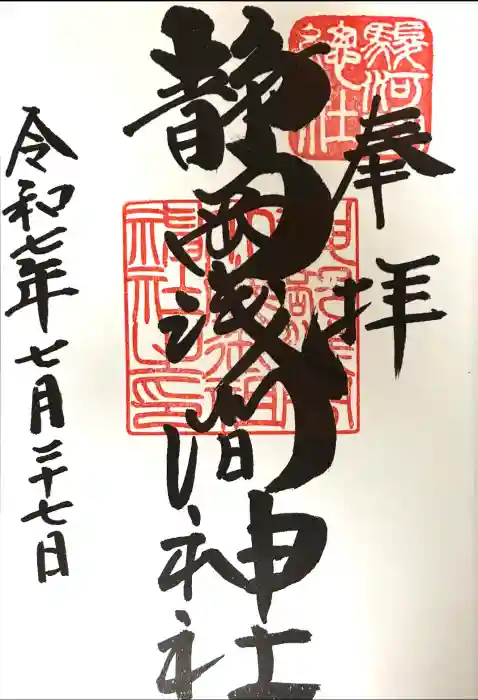 駿河國
總社
奉拝
静岡浅間神社
令和七年七月二十七日